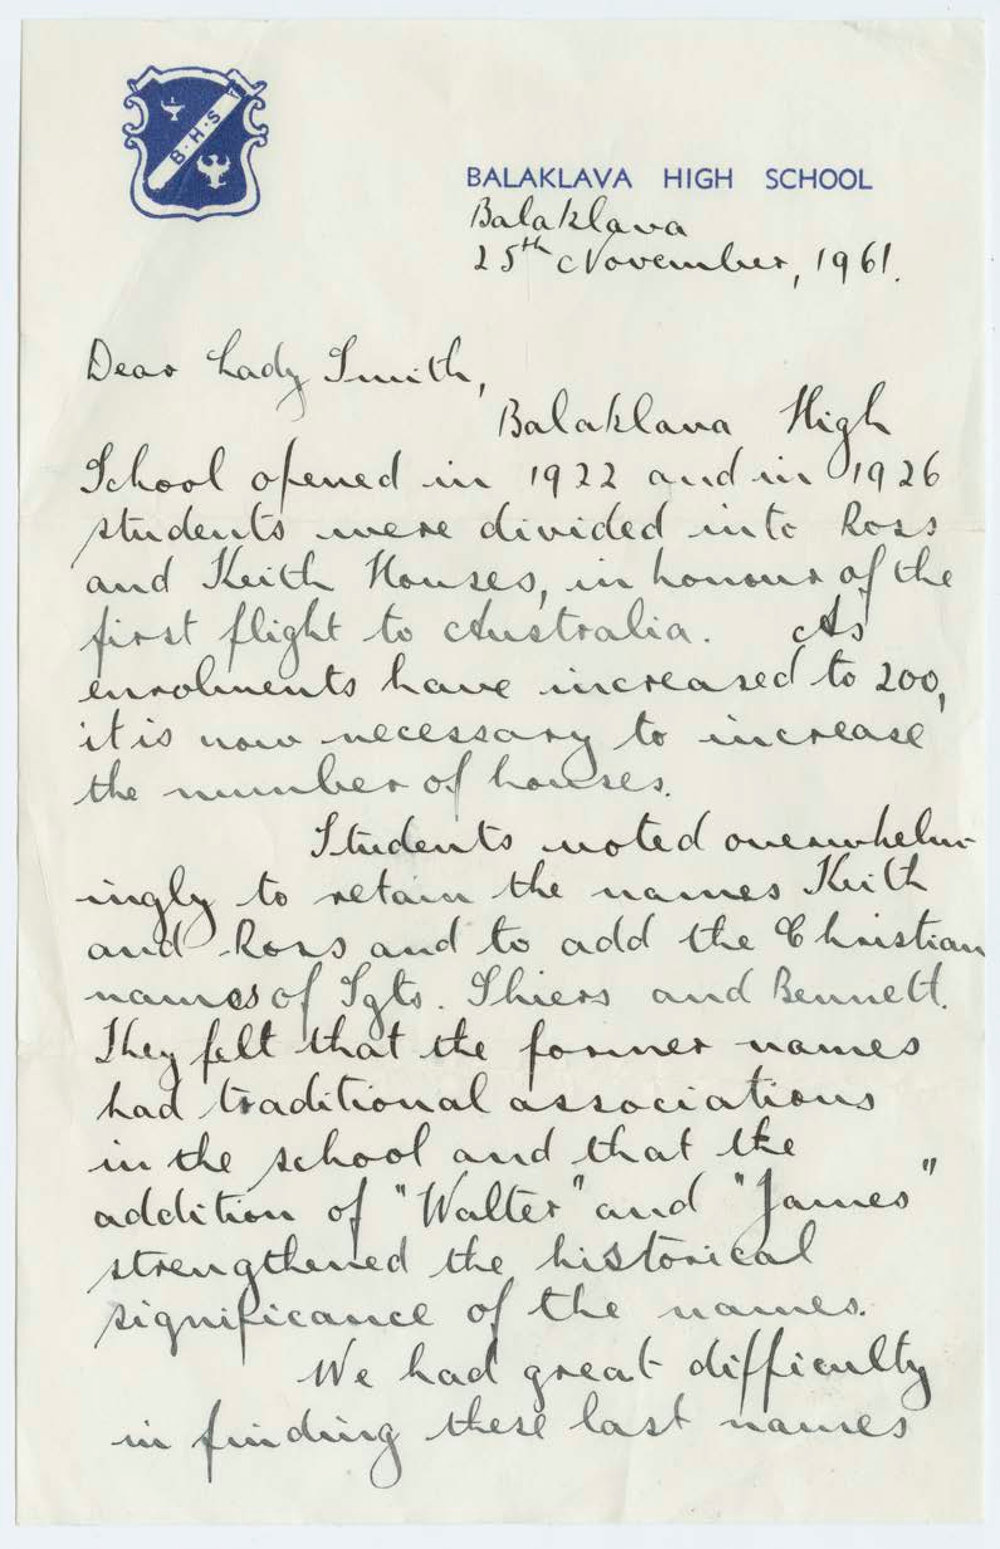 B·H·S
BALAKLAVA HIGH SCHOOL
Balaklava
25th November, 1961.
Dear Lady Smith,
Balaklava High
School opened in 1922 and in 1926
students were divided into Ross
and Keith Houses, in honour of the
first flight to Australia. As
enrolments have increased to 200,
it is now necessary to increase
the number of houses.
Students voted overwhelm-
ingly to retain the names Keith
and Ross and to add the Christian
names of Sgts. Shiers and Bennett.
They felt that the former names
had traditional associations
in the school and that the
addition of "Walter" and "James"
strengthened the historical
significance of the names.
We had great difficulty
in finding these last names